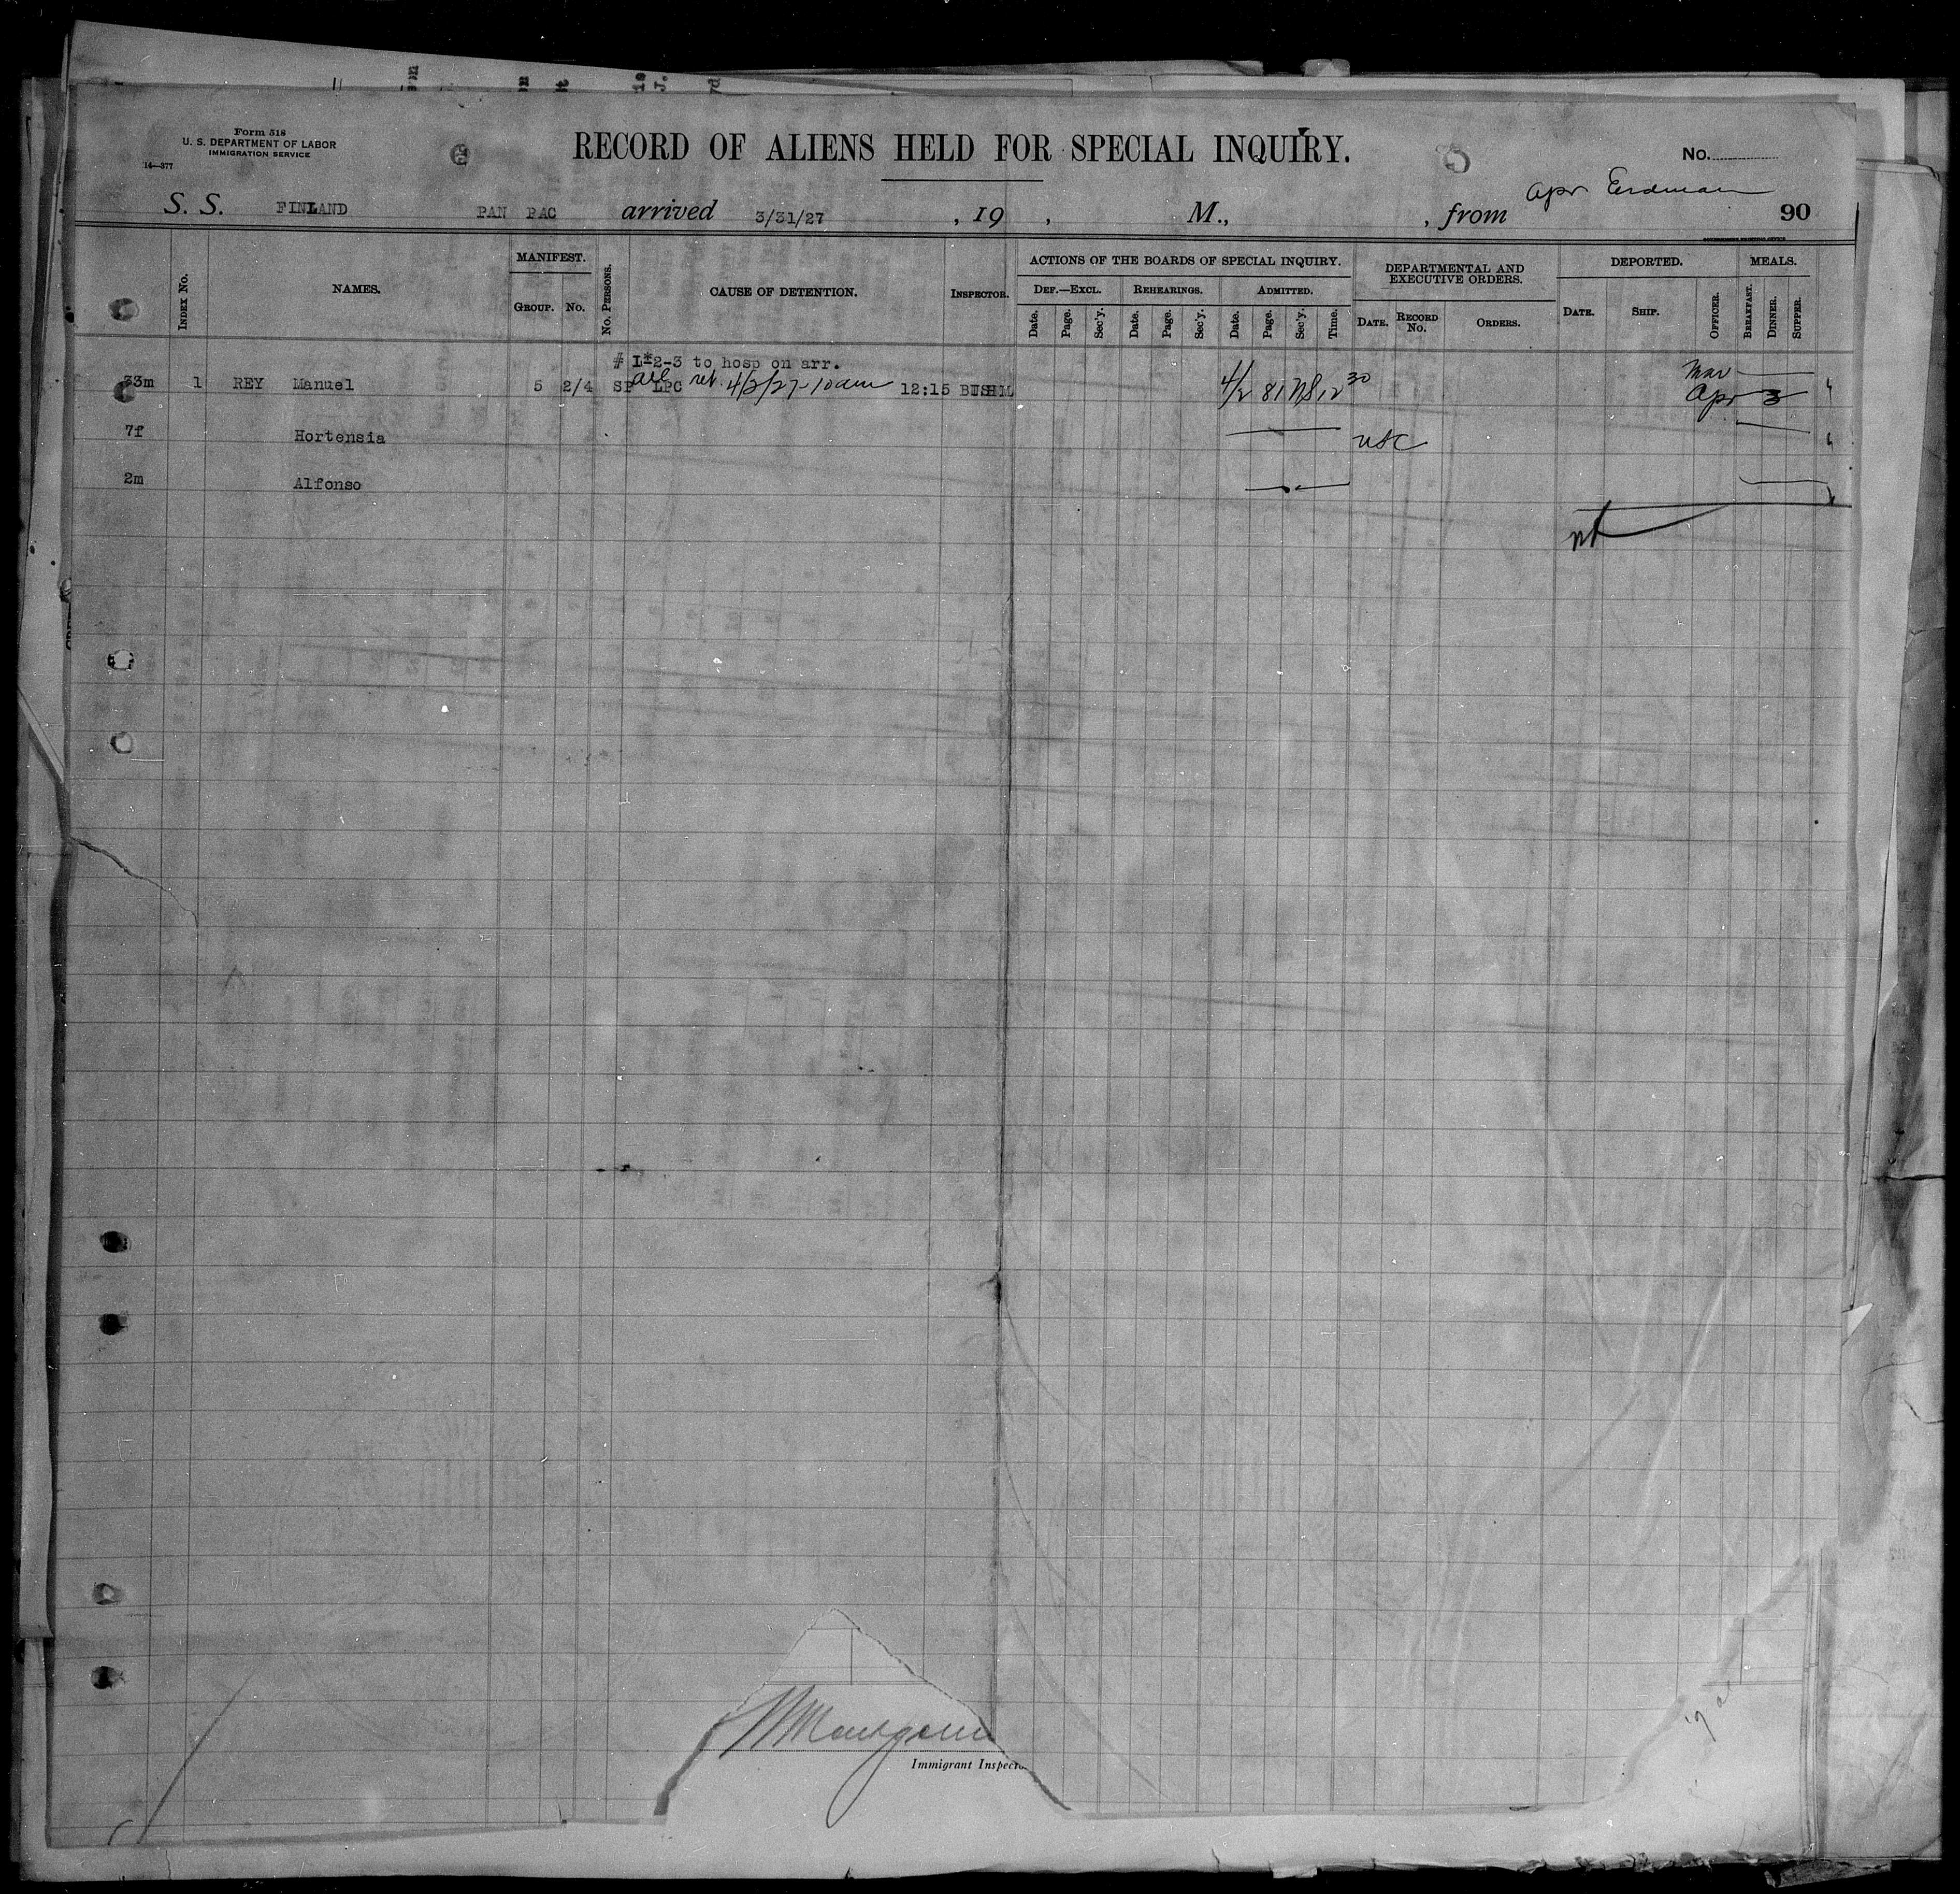 Form 518
U. S. DEPARTMENT OF LABOR
IMMIGRATION SERVICE
14—377
RECORD OF ALIENS HELD FOR SPECIAL INQUIRY.
No.
Apr Erdman
S. S. FINLAND PAN PAC arrived 3/31/27 , 19 , M., , from 90
GOVERNMENT PRINTING OFFICE
Index No. NAMES. MANIFEST. Group. No. No. Persons. CAUSE OF DETENTION. Inspector. ACTIONS OF THE BOARDS OF SPECIAL INQUIRY. Def.—Excl. Date. Page. Sec'y. Rehearings. Date. Page. Sec'y. Admitted. Date. Page. Sec'y. Time. DEPARTMENTAL AND EXECUTIVE ORDERS. Date. Record No. Orders. DEPORTED. Date. Ship. Officer. MEALS. Breakfast. Dinner. Supper.
# 1*2-3 to hosp on arr.
33m 1 REY Manuel 5 2/4 SP all LPC ret. 4/2/27-10am 12:15 4/2 81 NS 12 30 Mar
Apr 3
7f Hortensia USC
2m Alfonso
Immigrant Inspecto